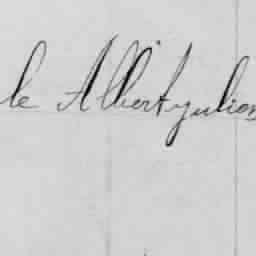 le Albertzulien